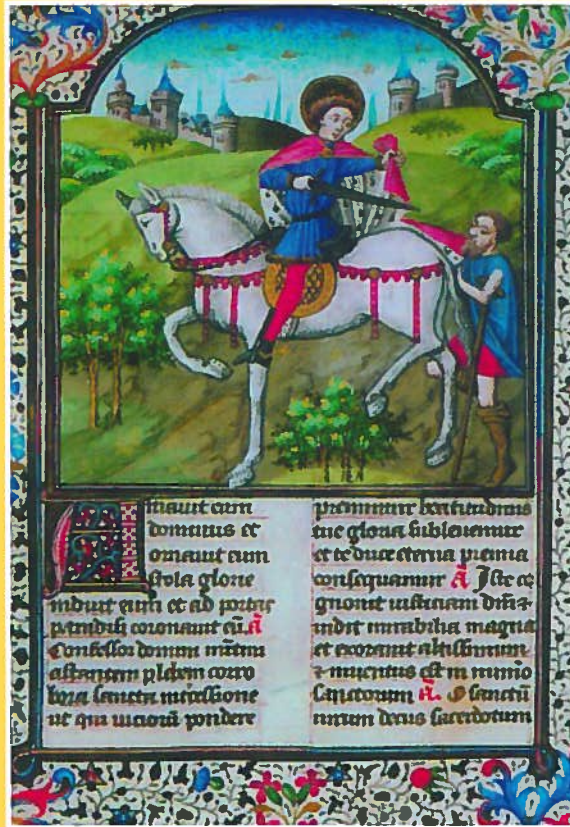 Amauit eum
dominus et
ornauit eum
stola glorie
induit eum et ad portas
paradisi coronauit eū. A
Confessor domini
astantem plebem corro
bora sancta intercessione
ut qui uiciorū pondere
premimur beatitudinis
tue gloria subleuemur
et te duce eterna premia
consequamur A Iste co
gnouit iusticiam dn̄i ⁊
uidit mirabilia magna
et exorauit altissimum
⁊ inuentus est in numero
sanctorum A. O sanctū
uirum decus sacerdotum